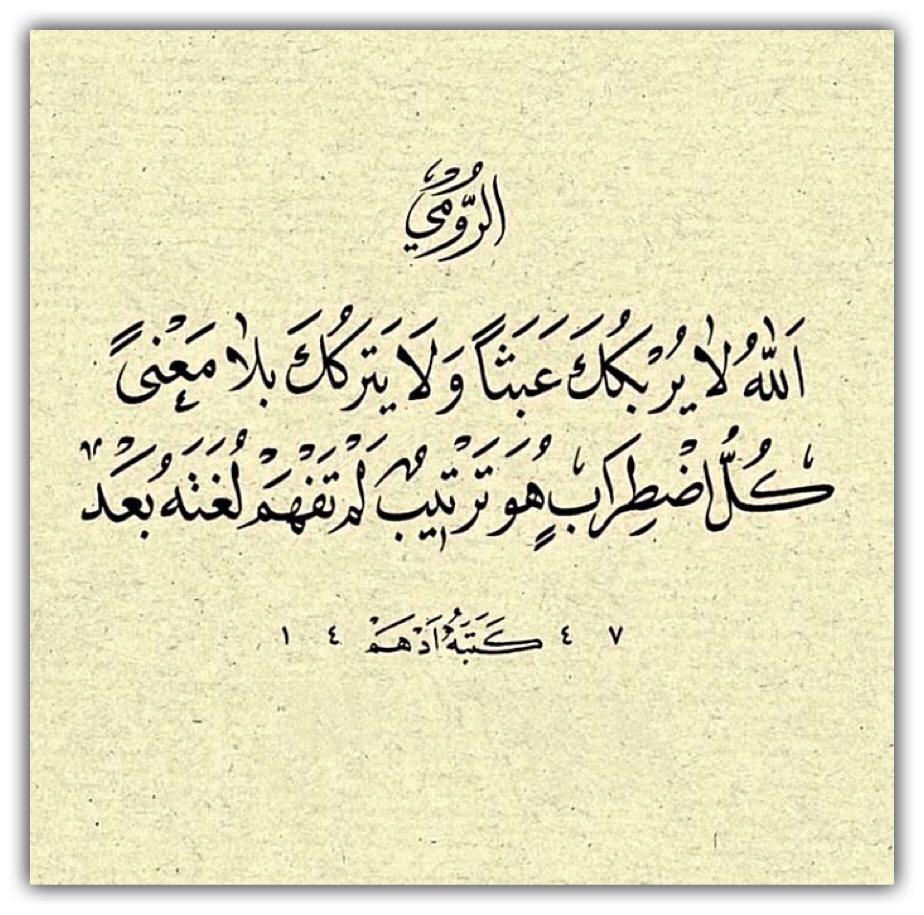 الرُّومي
اَللّٰهُ لَا يُرْبِكُكَ عَبَثَاً وَلَا يَتركُكَ بِلَا مَعْنىً
كُلُّ اضْطِرَابٍ هُوَ تَرْتِيْبٌ لَمْ تَفْهَمْ لُغَتَهُ بَعْدْ
١ ٤ كَتَبَهُ اَدْهَمْ ٤ ٧